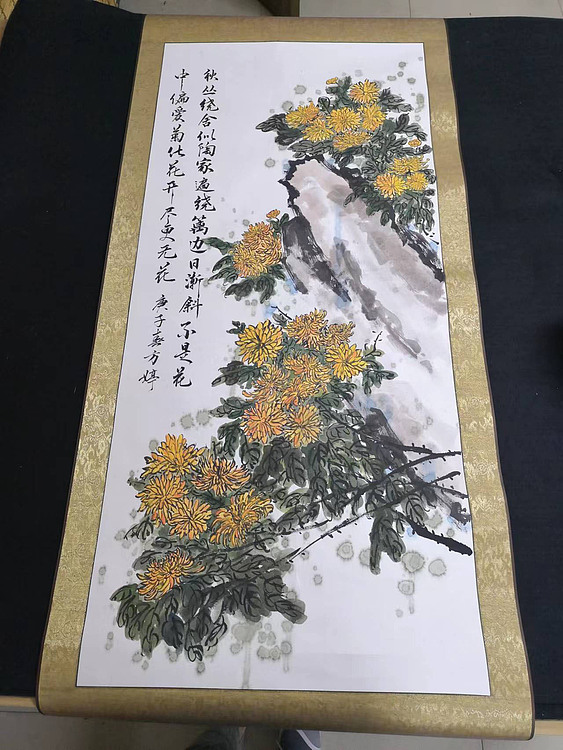 秋丛绕舍似陶家遍绕篱边日渐斜不是花
中偏爱菊此花开尽更无花 庚子春方婷